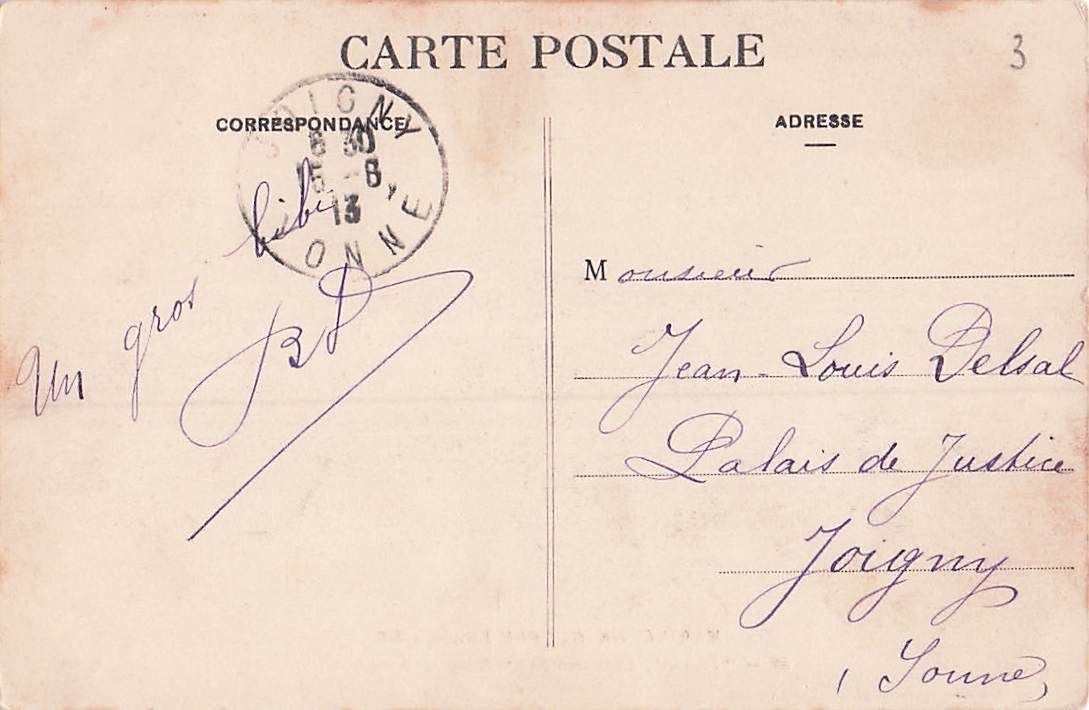 CARTE POSTALE
3
CORRESPONDANCE
ADRESSE
JOIGNY
6 30
15 - 8
13
YONNE
Un gros bibi
Monsieur
Jean-Louis Delsal
Palais de Justice
Joigny
(Yonne)